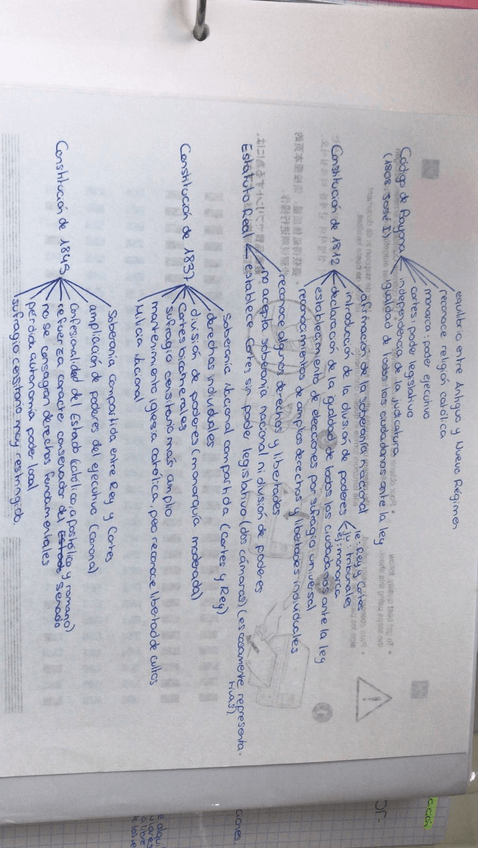 equilibrio entre Antiguo y Nuevo Régimen
reconoce religión católica
monarca: poder ejecutivo
cortes: poder legislativo
Código de Bayona
(1808, José I)
independencia de la judicatura
igualdad de todos los ciudadanos ante la ley
afirmación de la soberanía nacional
introducción de la división de poderes
le: Rey y Cortes
ju: tribunales
ej: monarca
Constitución de 1812
declaración de la igualdad de todos los ciudadanos ante la ley
establecimiento de elecciones por sufragio universal
reconocimientos de amplios derechos y libertades individuales
reconoce algunos derechos y libertades
no acepta soberanía nacional ni división de poderes
Estatuto Real
establece Cortes sin poder legislativo (dos cámaras) (escasamente representa-
tivas).
Soberanía nacional compartida (Cortes y Rey)
derechos individuales
división de poderes (monarquía moderada)
Constitución de 1837
Cortes bicamerales
sufragio censitario más amplio
mantenimiento iglesia católica, pero reconoce libertad de cultos
Milicia Nacional
Soberanía compartida entre Rey y Cortes
ampliación de poderes del ejecutivo (corona)
Confesionalidad del Estado (católica, apostólica y romana)
Constitución de 1845
refuerza carácter conservador del Senado
no se consagran derechos fundamentales
pérdida autonomía poder local
sufragio censitario muy restringido